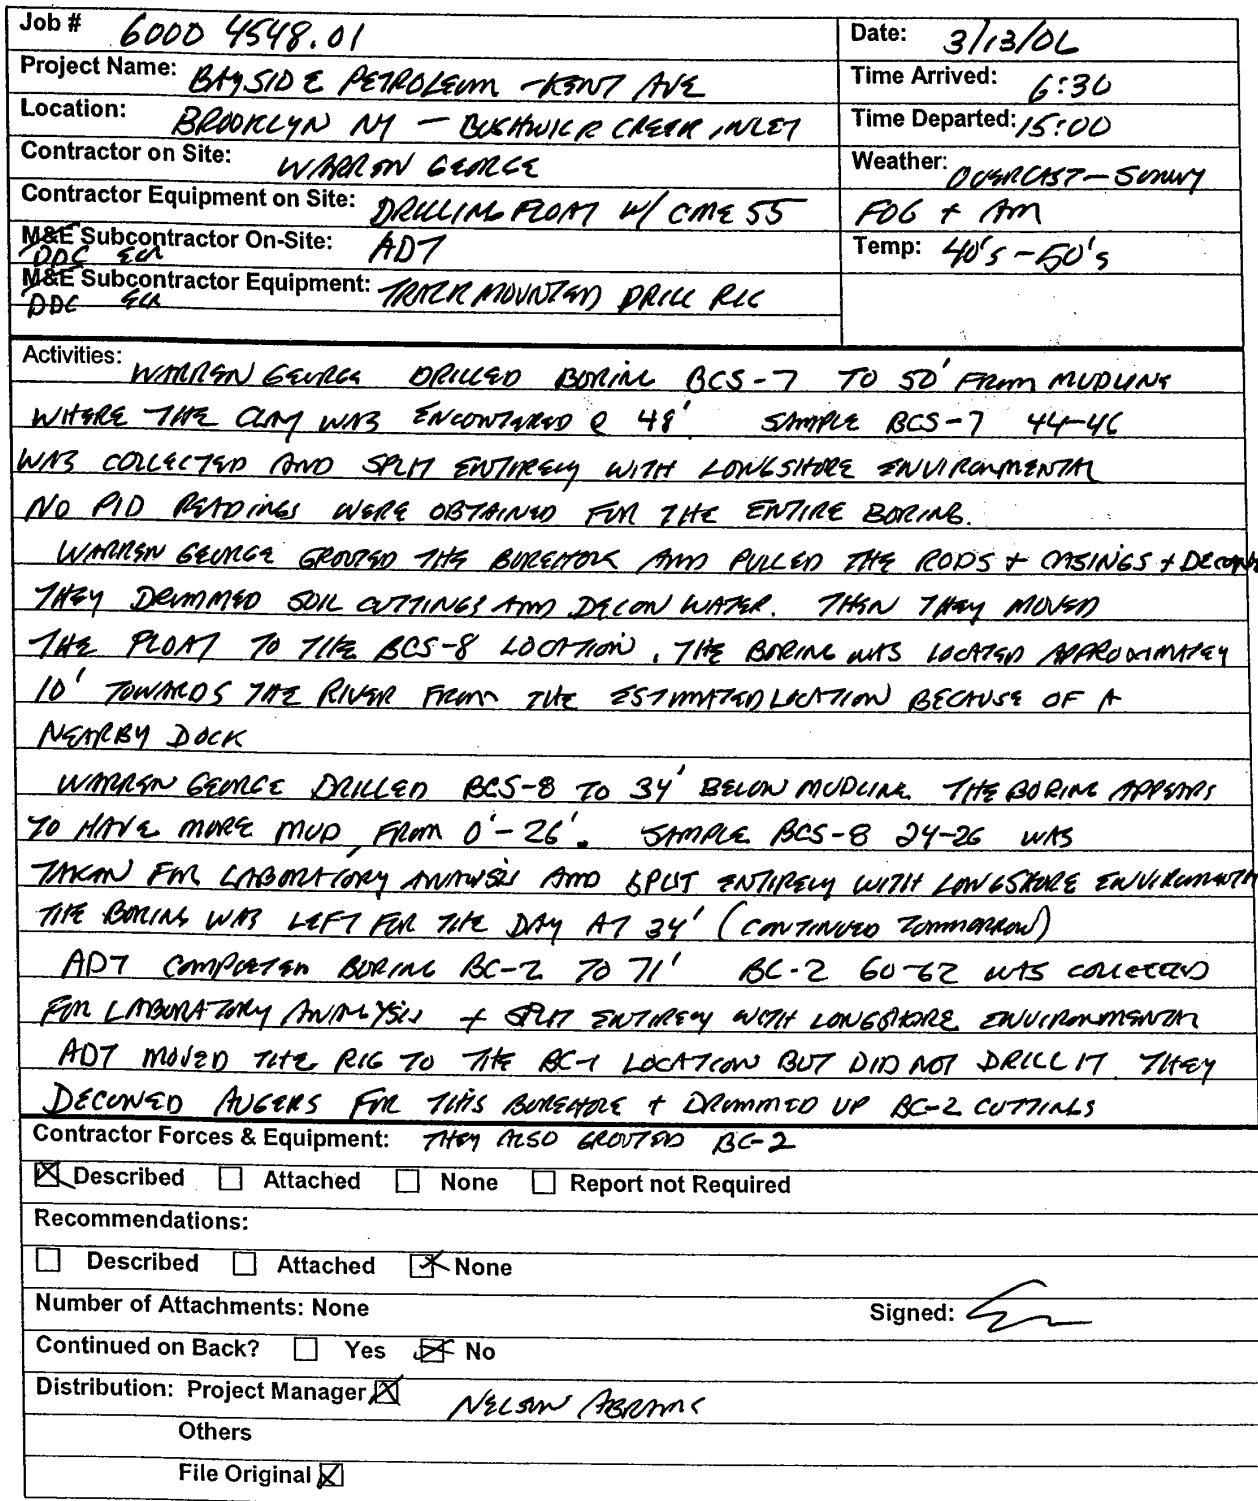 Job # 6000 4548.01 Date: 3/13/06
Project Name: BAYSIDE PETROLEUM - KENT AVE Time Arrived: 6:30
Location: BROOKLYN NY - BUSHWICK CREEK INLET Time Departed: 15:00
Contractor on Site: WARREN GEORGE Weather: OVERCAST - SUNNY
Contractor Equipment on Site: DRILLING FLOAT W/ CME 55 FOG + AM
M&E Subcontractor On-Site: ADT Temp: 40's - 50's
DDC
M&E Subcontractor Equipment: TRACK MOUNTED DRILL RIG
DDC
Activities: WARREN GEORGE DRILLED BORING BCS-7 TO 50' FROM MUDLINE
WHERE THE CLAY WAS ENCONTERED @ 48' SAMPLE BCS-7 44-46
WAS COLLECTED AND SPLIT ENTIRELY WITH LONGSHORE ENVIRONMENTAL
NO PID READINGS WERE OBTAINED FOR THE ENTIRE BORING.
WARREN GEORGE GROUTED THE BOREHOLE AND PULLED THE RODS + CASINGS +
THEY DRUMMED SOIL CUTTINGS AND DECON WATER. THEN THEY MOVED
THE FLOAT TO THE BCS-8 LOCATION. THE BORING WAS LOCATED APPROXIMATEY
10' TOWARDS THE RIVER FROM THE ESTIMATED LOCATION BECAUSE OF A
NEARBY DOCK
WARREN GEORGE DRILLED BCS-8 TO 34' BELOW MUDLINE. THE BORING APPEARS
TO HAVE MORE MUD, FROM 0'-26'. SAMPLE BCS-8 24-26 WAS
TAKEN FOR LABORATORY ANALYSIS AND SPLIT ENTIRELY WITH LONGSHORE ENVIRONMENTA
THE BORING WAS LEFT FOR THE DAY AT 34' (CONTINUED TOMMORROW)
ADT COMPLETED BORING BC-2 TO 71' BC-2 60-62 WAS COLLECTED
FOR LABORATORY ANALYSIS + SPLIT ENTIRELY WITH LONGSHORE ENVIRONMENTAL
ADT MOVED THE RIG TO THE BC-1 LOCATION BUT DID NOT DRILL IT. THEY
DECONED AUGERS FOR THIS BOREHOLE + DRUMMED UP BC-2 CUTTINGS
Contractor Forces & Equipment: THEY ALSO GROUTED BC-2
Described Attached None Report not Required
Recommendations:
Described Attached None
Number of Attachments: None Signed:
Continued on Back? Yes No
Distribution: Project Manager NELSON ABRAMS
Others
File Original